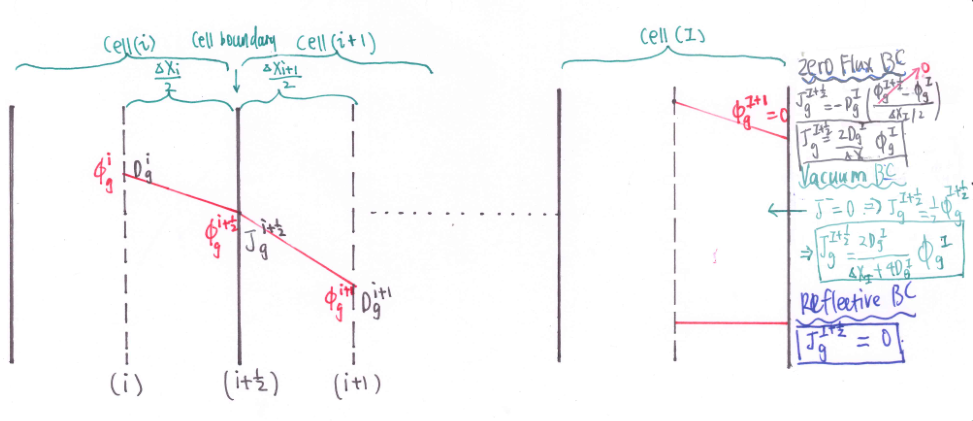 Cell(i)
Cell boundary
Cell(i+1)
ΔXi/2
ΔXi+1/2
ϕ_g^i
D_g^i
ϕ_g^{i+½}
J_g^{i+½}
ϕ_g^{i+1}
D_g^{i+1}
(i)
(i+½)
(i+1)
Cell(I)
ϕ_g^{I+1} = 0
Zero Flux BC
J_g^{I+½} = -D_g^I (ϕ_g^{I+½} - ϕ_g^I / ΔX_I/2)
0
J_g^{I+½} = 2D_g^I/ΔX ϕ_g^I
Vacuum BC
J^- = 0 ⇒ J_g^{I+½} = ½ ϕ_g^{I+½}
⇒ J_g^{I+½} = 2D_g^I / ΔX_I + 4D_g^I ϕ_g^I
Reflective BC
J_g^{I+½} = 0